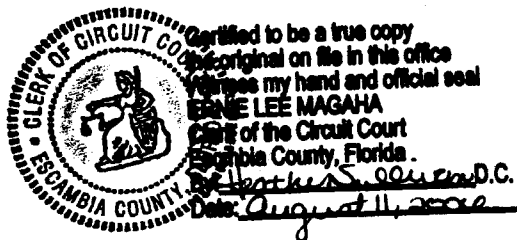 CLERK OF CIRCUIT CO
ESCAMBIA COUNTY
Certified to be a true copy
original on file in this office
Witness my hand and official seal
ERNIE LEE MAGAHA
Clerk of the Circuit Court
Escambia County, Florida.
By: D.C.
Date: August 11,